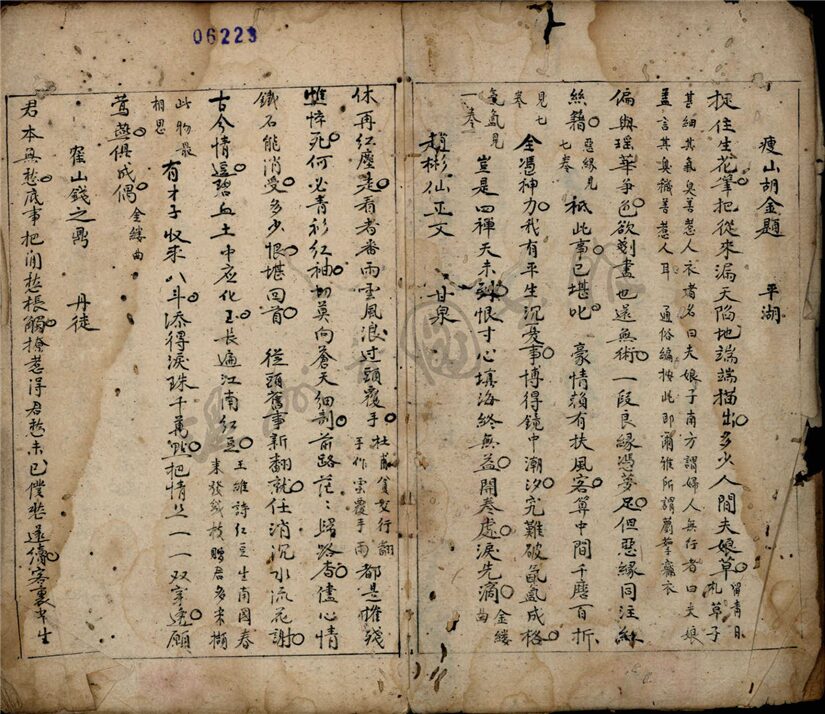 06223
瘦山胡金題　平湖
捉住生花筆把從來漏天陷地端端描出多少人間夫娘草
甚細其氣臭善惹人衣者名曰夫娘子南方謂婦人無行者曰夫娘
蓋言其臭穢善惹人耳　通俗編按此即爾雅所謂
偏與瑤華爭色欲剗盡也還無術一段良緣憑夢足但惡緣同注絲
絲籍惡緣見七卷　秪此事已堪叱　豪情賴有扶風客算中間千磨百折
見七卷　全憑神力我有平生沉憂事博得鏡中潮汐究難破氤氳成格
氤氳見一卷　豈是四禪天未到恨寸心填海終無益開卷處淚先滴　金縷曲
趙彬仙正文　甘泉
休再紅塵走看者番雨雲風浪過頭覆手　杜甫貧交行翻手作雲覆手雨　都是摧殘
憔悴死何必青衫紅袖切莫向蒼天細剖前路茫茫歸路杳儘心情
鐵石能消受多少恨堪回首　從頭舊事新翻就任消沉水流花謝
古今情逗碧血土中應化玉長遍江南紅豆　王維詩紅豆生南國春來發幾枝贈君多采擷
此物最相思　有才子收來八斗添得淚珠千萬點把情絲一一雙穿透願
鶯燕俱成偶　金縷曲
鶴山錢之鼎　丹徒
君本無愁底事把閒愁棖觸撩惹得君愁未已僕愁還續客裏半生